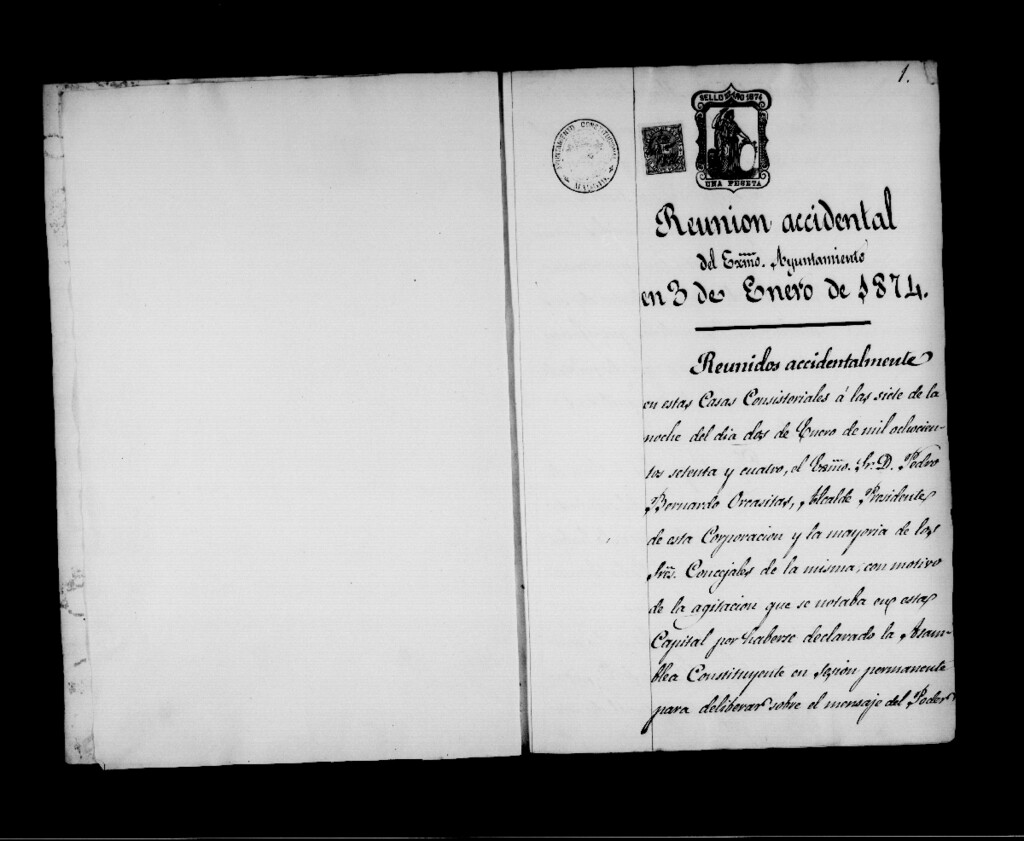 1.
SELLO 10º AÑO 1874
UNA PESETA
AYUNTAMIENTO CONSTITUCIONAL
MADRID
Reunion accidental
del Exmo. Ayuntamiento
en 3 de Enero de 1874.
Reunidos accidentalmente
en estas Casas Consistoriales á las siete de la
noche del dia dos de Enero de mil ochocien-
tos setenta y cuatro, el Exmo. Sr. D. Pedro
Bernardo Orcasitas, Alcalde Presidente
de esta Corporacion y la mayoria de los
Sres. Concejales de la misma, con motivo
de la agitacion que se notaba en esta
Capital por haberse declarado la Asam-
blea Constituyente en sesion permanente
para deliberar sobre el mensaje del Poder